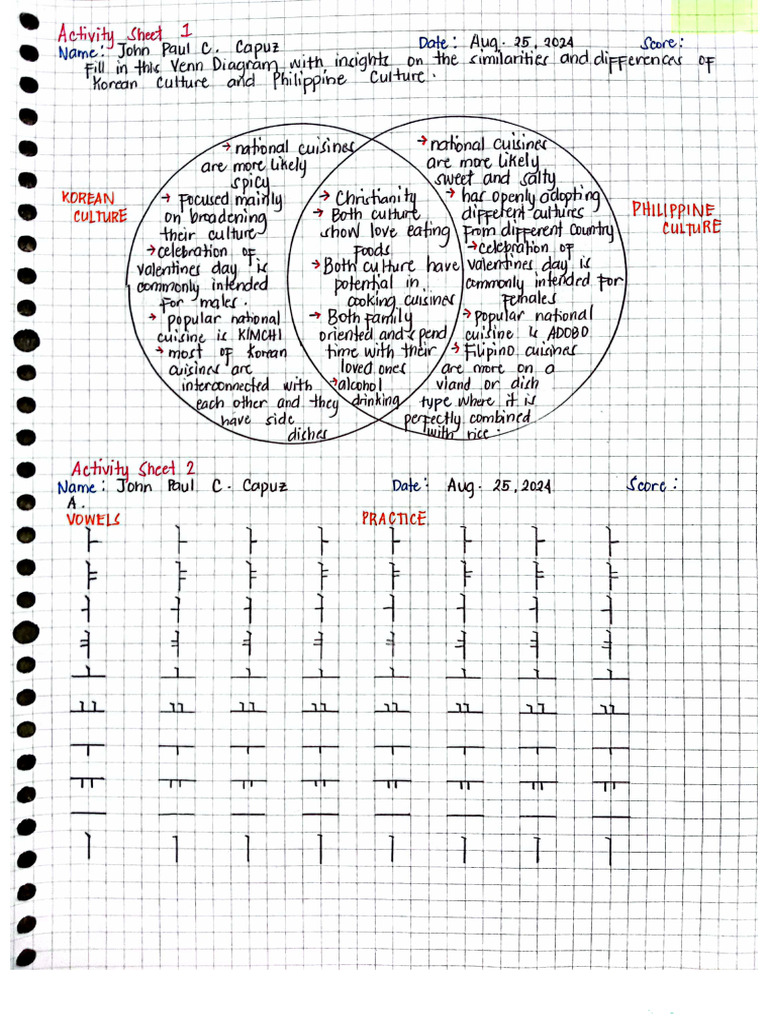 Activity Sheet 1
Name: John Paul C. Capuz Date: Aug. 25, 2024 Score:
Fill in this Venn Diagram with insights on the similarities and differences of
Korean Culture and Philippine Culture.
KOREAN
CULTURE
→ national cuisines
are more likely
spicy
→ Focused mainly
on broadening
their culture
→ celebration of
valentines day is
commonly intended
for males.
→ popular national
cuisine is KIMCHI
→ most of Korean
cuisines are
interconnected with
each other and they
have side
dishes
→ Christianity
→ Both culture
show love eating
foods
→ Both culture have
potential in
cooking cuisines
→ Both family
oriented and spend
time with their
loved ones
→ alcohol
drinking
→ national cuisines
are more likely
sweet and salty
→ has openly adopting
different cultures
from different country
→ celebration of
valentines day is
commonly intended for
females
→ popular national
cuisine is ADOBO
→ Filipino cuisines
are more on a
viand or dish
type where it is
perfectly combined
with rice.
PHILIPPINE
CULTURE
Activity Sheet 2
Name: John Paul C. Capuz Date: Aug. 25, 2024 Score:
A.
VOWELS PRACTICE
ㅏ ㅏ ㅏ ㅏ ㅏ ㅏ ㅏ ㅏ
ㅑ ㅑ ㅑ ㅑ ㅑ ㅑ ㅑ ㅑ
ㅓ ㅓ ㅓ ㅓ ㅓ ㅓ ㅓ ㅓ
ㅕ ㅕ ㅕ ㅕ ㅕ ㅕ ㅕ ㅕ
ㅗ ㅗ ㅗ ㅗ ㅗ ㅗ ㅗ ㅗ
ㅛ ㅛ ㅛ ㅛ ㅛ ㅛ ㅛ ㅛ
ㅜ ㅜ ㅜ ㅜ ㅜ ㅜ ㅜ ㅜ
ㅠ ㅠ ㅠ ㅠ ㅠ ㅠ ㅠ ㅠ
ㅡ ㅡ ㅡ ㅡ ㅡ ㅡ ㅡ ㅡ
ㅣ ㅣ ㅣ ㅣ ㅣ ㅣ ㅣ ㅣ